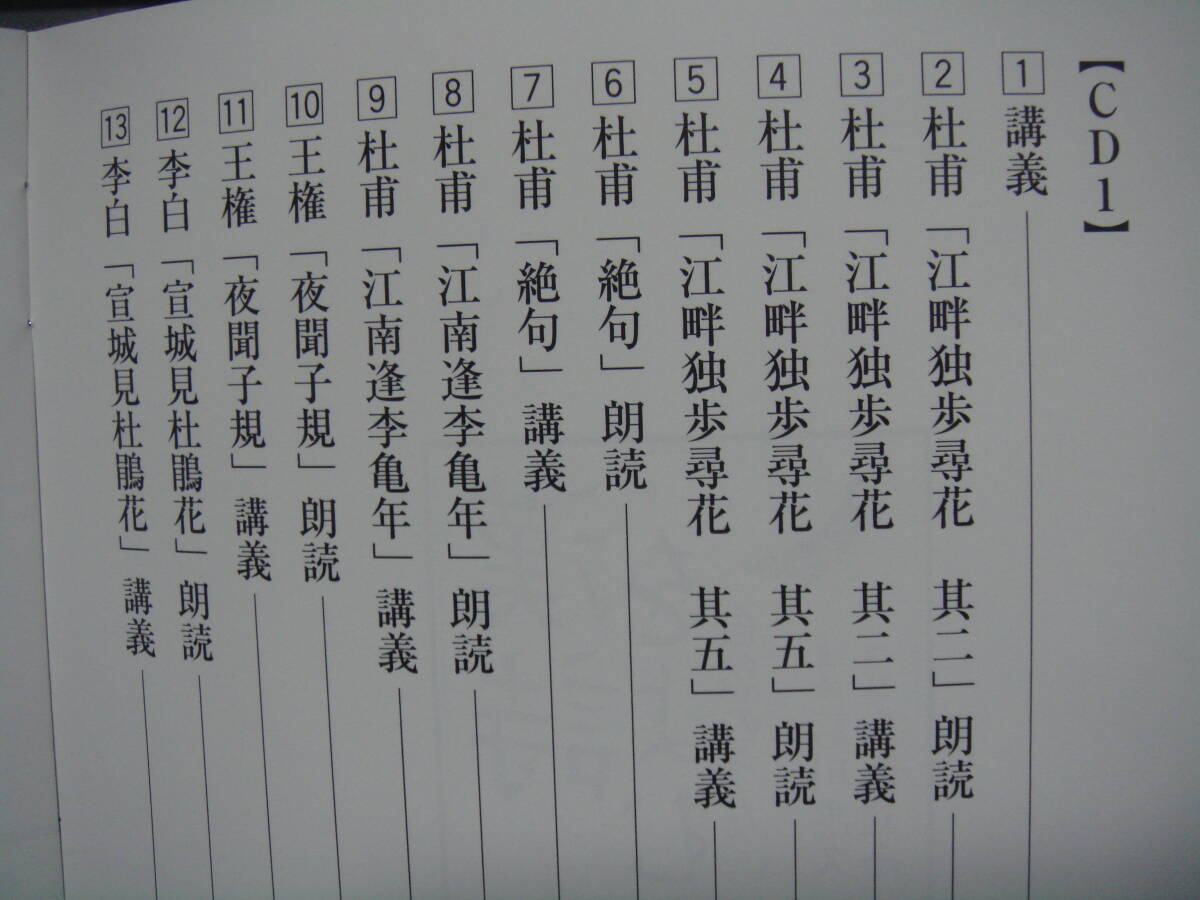 【CD1】
1 講義
2 杜甫「江畔独歩尋花 其二」朗読
3 杜甫「江畔独歩尋花 其二」講義
4 杜甫「江畔独歩尋花 其五」朗読
5 杜甫「江畔独歩尋花 其五」講義
6 杜甫「絶句」朗読
7 杜甫「絶句」講義
8 杜甫「江南逢李亀年」朗読
9 杜甫「江南逢李亀年」講義
10 王権「夜聞子規」朗読
11 王権「夜聞子規」講義
12 李白「宣城見杜鵑花」朗読
13 李白「宣城見杜鵑花」講義